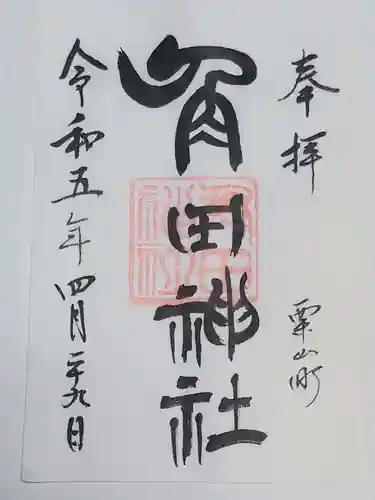 奉拝
栗山町
角田神社
令和五年四月二十九日